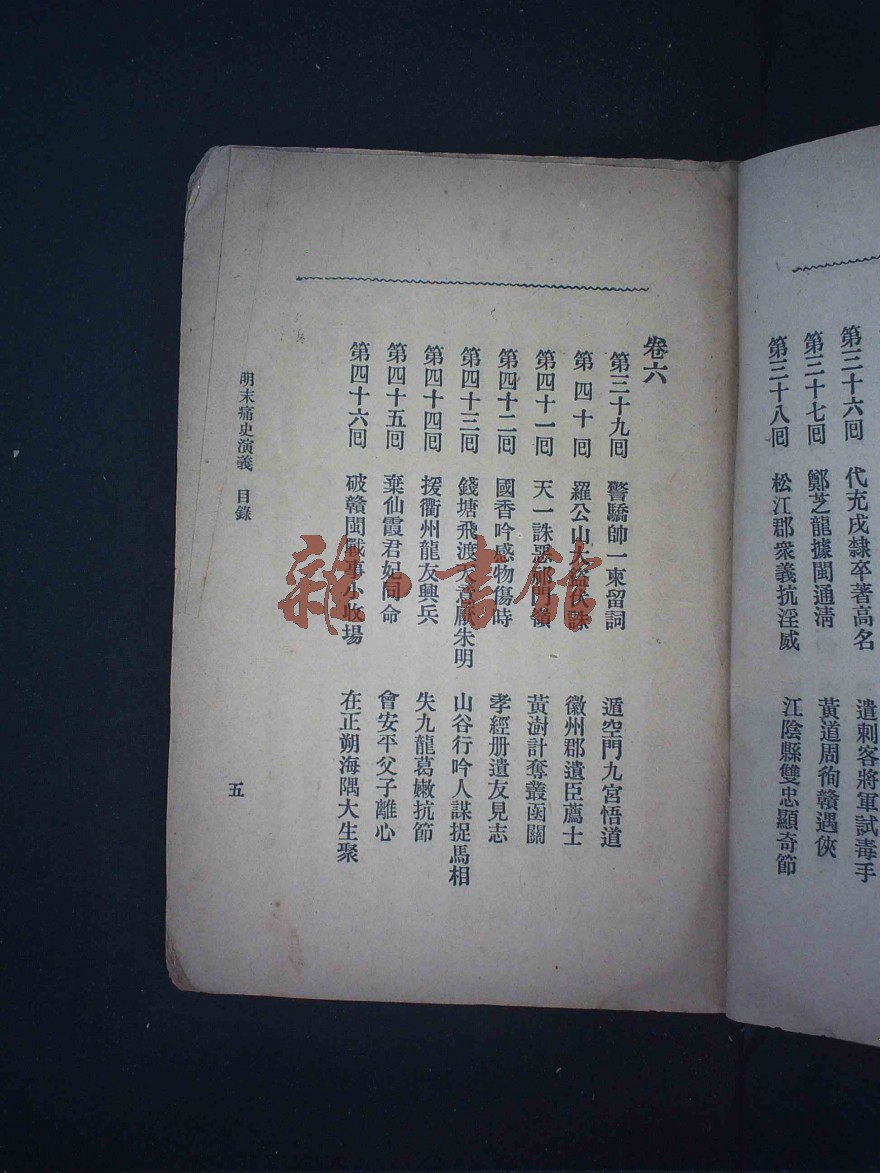 第三十六回 代充戍隸卒著高名 遣刺客將軍試毒手
第三十七回 鄭芝龍據閩通清 黃道周徇贛遇俠
第三十八回 松江郡衆義抗淫威 江陰縣雙忠顯奇節
卷六
第三十九回 警驕帥一柬留詞 遁空門九宮悟道
第四十回 羅公山大盜伏誅 徽州郡遺臣薦士
第四十一回 天一誅惡祁門嶺 黃澍計奪叢函關
第四十二回 國香吟感物傷時 孝經册遺友見志
第四十三回 錢塘飛渡天意厭朱明 山谷行吟人謀捉馬相
第四十四回 援衢州龍友興兵 失九龍葛嫩抗節
第四十五回 棄仙霞君妃同命 會安平父子離心
第四十六回 破贛閩戰事小收場 在正朔海隅大生聚
明末痛史演義 目錄
五
雜 書館